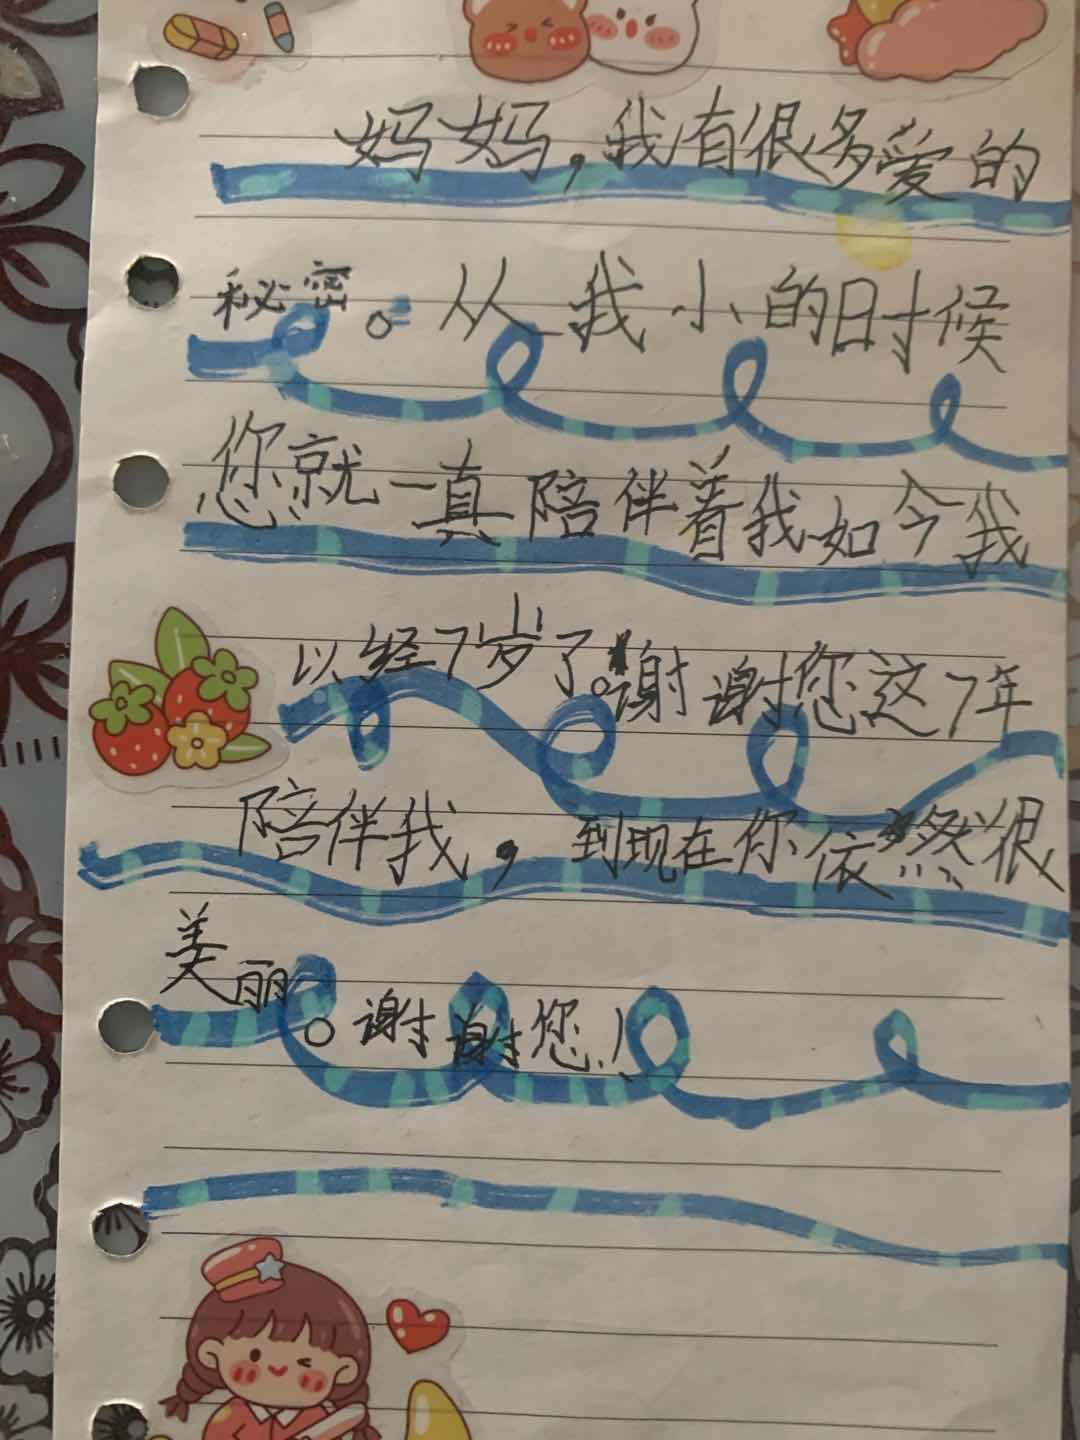 妈妈,我有很多爱的
秘密。从我小的时候
您就一真陪伴着我如今我
以经7岁了。谢谢您这7年
陪伴我,到现在你依然很
美丽。谢谢您!